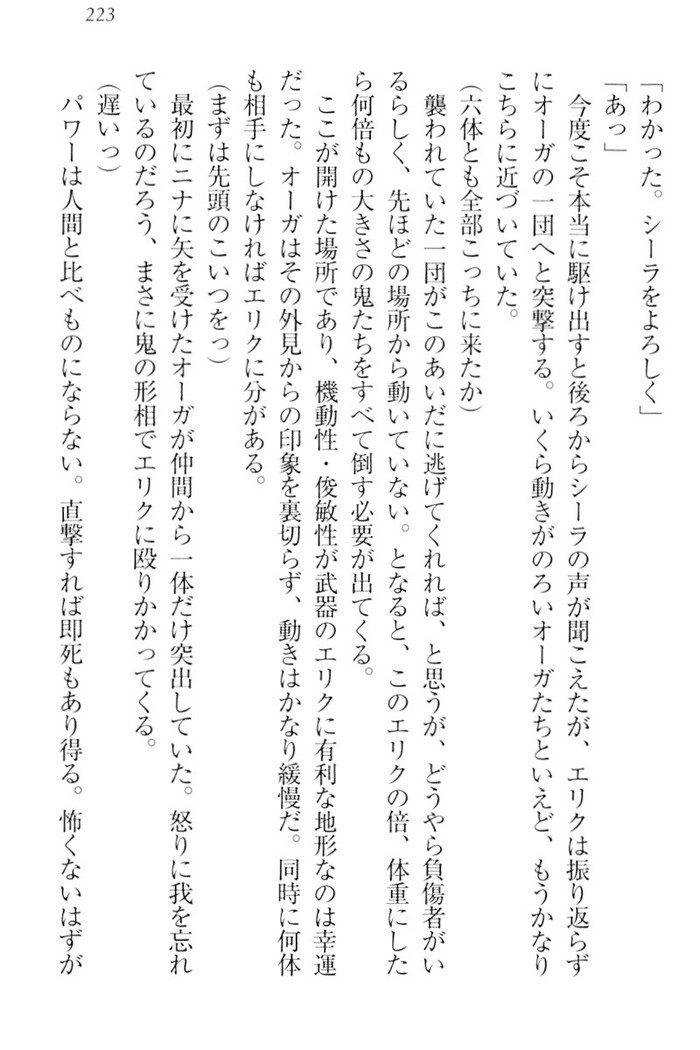 223
「わかった。シーラをよろしく」
「あっ」
　今度こそ本当に駆け出すと後ろからシーラの声が聞こえたが、エリクは振り返らず
にオーガの一団へと突撃する。いくら動きがのろいオーガたちといえど、もうかなり
こちらに近づいていた。
（六体とも全部こっちに来たか）
　襲われていた一団がこのあいだに逃げてくれれば、と思うが、どうやら負傷者がい
るらしく、先ほどの場所から動いていない。となると、このエリクの倍、体重にした
ら何倍もの大きさの鬼たちをすべて倒す必要が出てくる。
　ここが開けた場所であり、機動性・俊敏性が武器のエリクに有利な地形なのは幸運
だった。オーガはその外見からの印象を裏切らず、動きはかなり緩慢だ。同時に何体
も相手にしなければエリクに分がある。
（まずは先頭のこいつをっ）
　最初にニナに矢を受けたオーガが仲間から一体だけ突出していた。怒りに我を忘れ
ているのだろう、まさに鬼の形相でエリクに殴りかかってくる。
（遅いっ）
　パワーは人間と比べものにならない。直撃すれば即死もあり得る。怖くないはずが